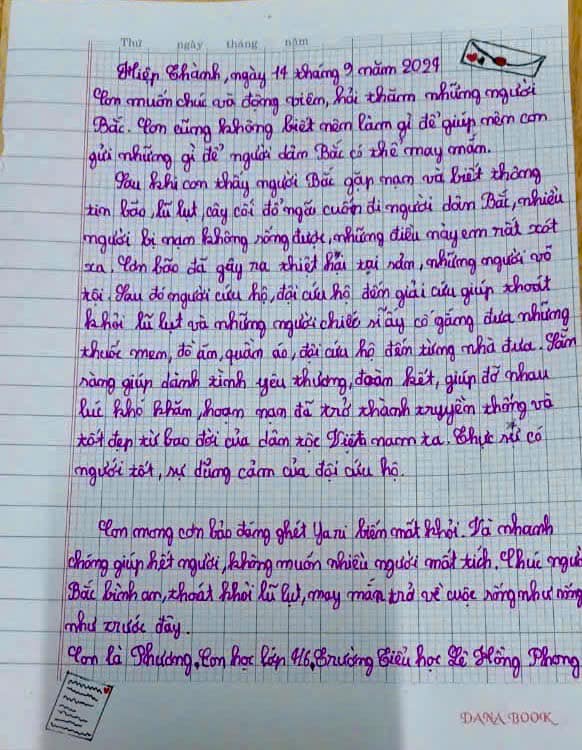 Thứ ngày tháng năm
Hiệp Thành, ngày 14 tháng 9 năm 2024
Con muốn chúc và động viên, hỏi thăm những người
Bắc. Con cũng không biết nêm làm gì để giúp nêm con
gửi những gì để người dâm Bắc có thể may mắn.
Sau khi con thấy người Bắc gặp nạm và biết thông
tin bão, lũ lụt, cây cối đổ ngã cuốn đi người dâm Bắc, nhiều
người bị nạm không sống được, những điều này em rất xót
xa. Cơn bão đã gây ra thiệt hại tại sảm, những người vô
tội. Sau đó người cứu hộ, đội cứu hộ đếm giải cứu giúp thoát
khỏi lũ lụt và những người chiếc sĩ ấy cố gắng đưa những
thuốc mem, đồ ăm, quầm áo, đội cứu hộ đến từng nhà đưa. Sẵm
sàng giúp dành tình yêu thương, đoàm kết, giúp đỡ nhau
lúc khó khăm, hoạm nạm đã trở thành truyềm thống và
tốt đẹp từ bao đời của dâm tộc Việt nam ta. Thực sự có
người tốt, sự dũng cảm của đội cứu hộ.
Con mong cơn bảo đáng ghét Yani biếm mất khỏi. Và nhanh
chóng giúp hết người, không muốn nhiều người mất tích. Chúc người
Bắc bình am, thoát khỏi lũ lụt, may mắn trở về cuộc sống như nống
như trước đây.
Con là Phương, Con học lớp 4/6, Trường Tiểu học Lê Hồng Phong
DANA BOOK